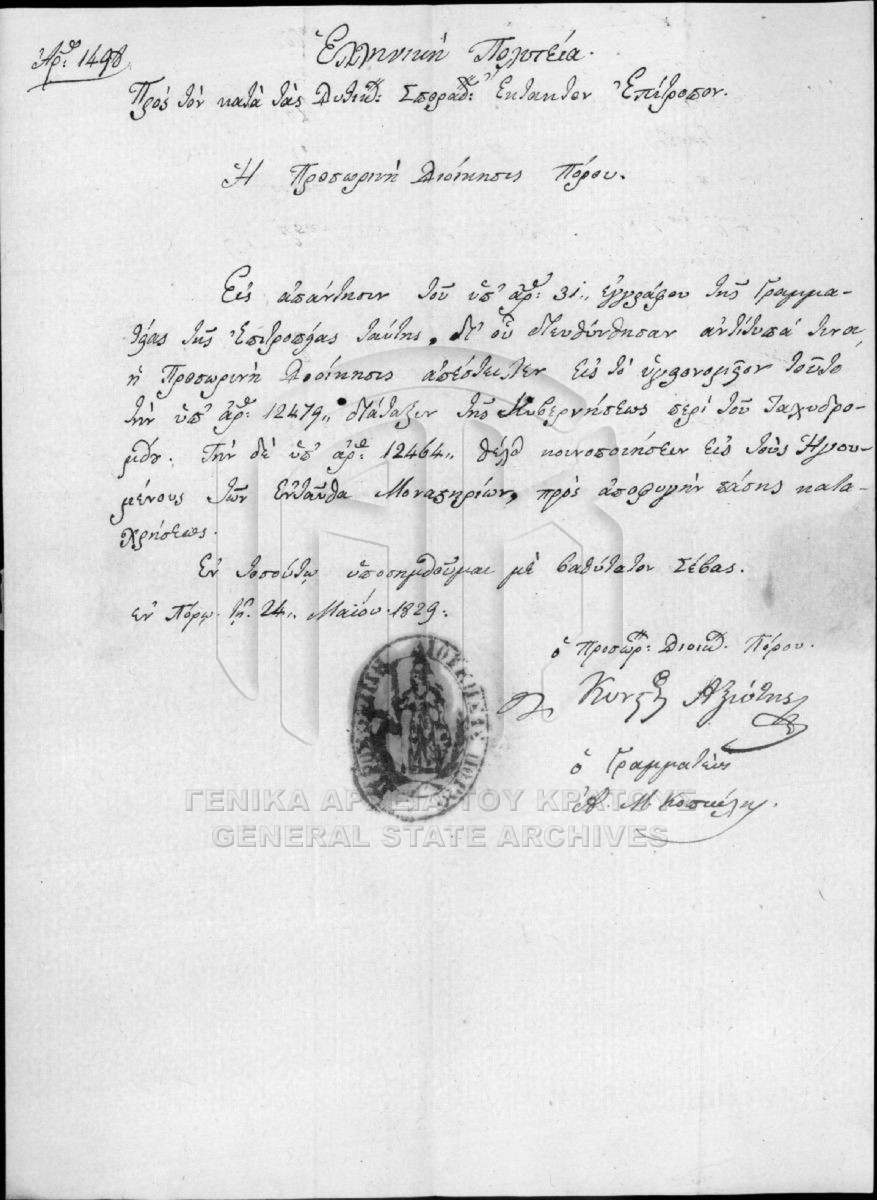 Ἀρ: 1498
Ἑλληνικὴ Πολιτεία.
Πρὸς τὸν κατὰ τὰς Δυτικ: Σποράδ: Ἔκτακτον Ἐπίτροπον.
Ἡ Προσωρινὴ Διοίκησις Πόρου.
Εἰς ἀπάντησιν τοῦ ὑπ' ἀρ: 31,, ἐγγράφου τῆς Γραμμα-
τείας τῆς Ἐπιτροπείας ταύτης, δι' οὗ διευθύνθησαν ἀντίτυπά τινα
ἡ Προσωρινὴ Διοίκησις ἀπέστειλεν εἰς τὸ τοῦτο
τὴν ὑπ' ἀρ: 12479,, διάταξιν τῆς Κυβερνήσεως περὶ τοῦ ταχυδρο-
μείου. Τὴν δὲ ὑπ' ἀρ: 12464,, θέλει κοινοποιήσειν εἰς τοὺς Ἡγου-
μένους τῶν ἐνταῦθα Μοναστηρίων, πρὸς ἀποφυγὴν πάσης κατα-
χρήσεως.
Ἐν τοσούτῳ ὑποσημειοῦμαι μὲ βαθύτατον σέβας.
ἐν Πόρῳ τῇ 24,, Μαΐου 1829:
ὁ Προσωρ: Διοικ. Πόρου.
Κυνστ Ἀξιώτης
ὁ Γραμματεὺς
Ἀ. Μ.
ΠΡΟΣΩΡΙΝΗ ΔΙΟΙΚΗΣΙΣ ΠΟΡΟΥ
ΓΕΝΙΚΑ ΑΡΧΕΙΑ ΤΟΥ ΚΡΑΤΟΥΣ
GENERAL STATE ARCHIVES